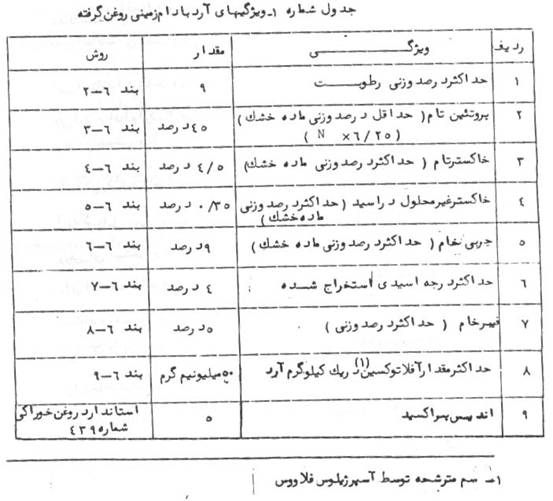 جدول شماره ۱ـ ویژگیهای آرد بادام زمینی روغن گرفته
ردیف ویژگی مقدار روش
۱ حداکثر درصد وزنی رطوبت ۹ بند ۶-۲
۲ پروتئین تام ( حداقل درصد وزنی ماده خشک ) ٤٥ درصد بند ۶-۳
( N ×۶/۲۵ )
۳ خاکستر تام ( حداکثر درصد وزنی ماده خشک) ٤/٥ درصد بند ۶-٤
٤ خاکستر غیر محلول در اسید ( حداکثر درصد وزنی ۰/۳٥ درصد بند ۶-٥
ماده خشک )
٥ چربی خام ( حداکثر درصد وزنی ماده خشک ) ۹ درصد بند ۶-۶
۶ حداکثر درجه اسیدی استخراج شده ٤ درصد بند ۶-۷
۷ فیبر خام ( حداکثر درصد وزنی ) ٥ درصد بند ۶-۸
۸ حداکثر مقدار آفلاتوکسین(۱) در یک کیلوگرم آرد ٥۰ میلیونیم گرم بند ۶-۹
۹ اندیس پراکسید ٥ استاندارد روغن خوراکی
شماره ٤۳۹
۱ـ سم مترشحه توسط آسپرژیلوس فلاووس